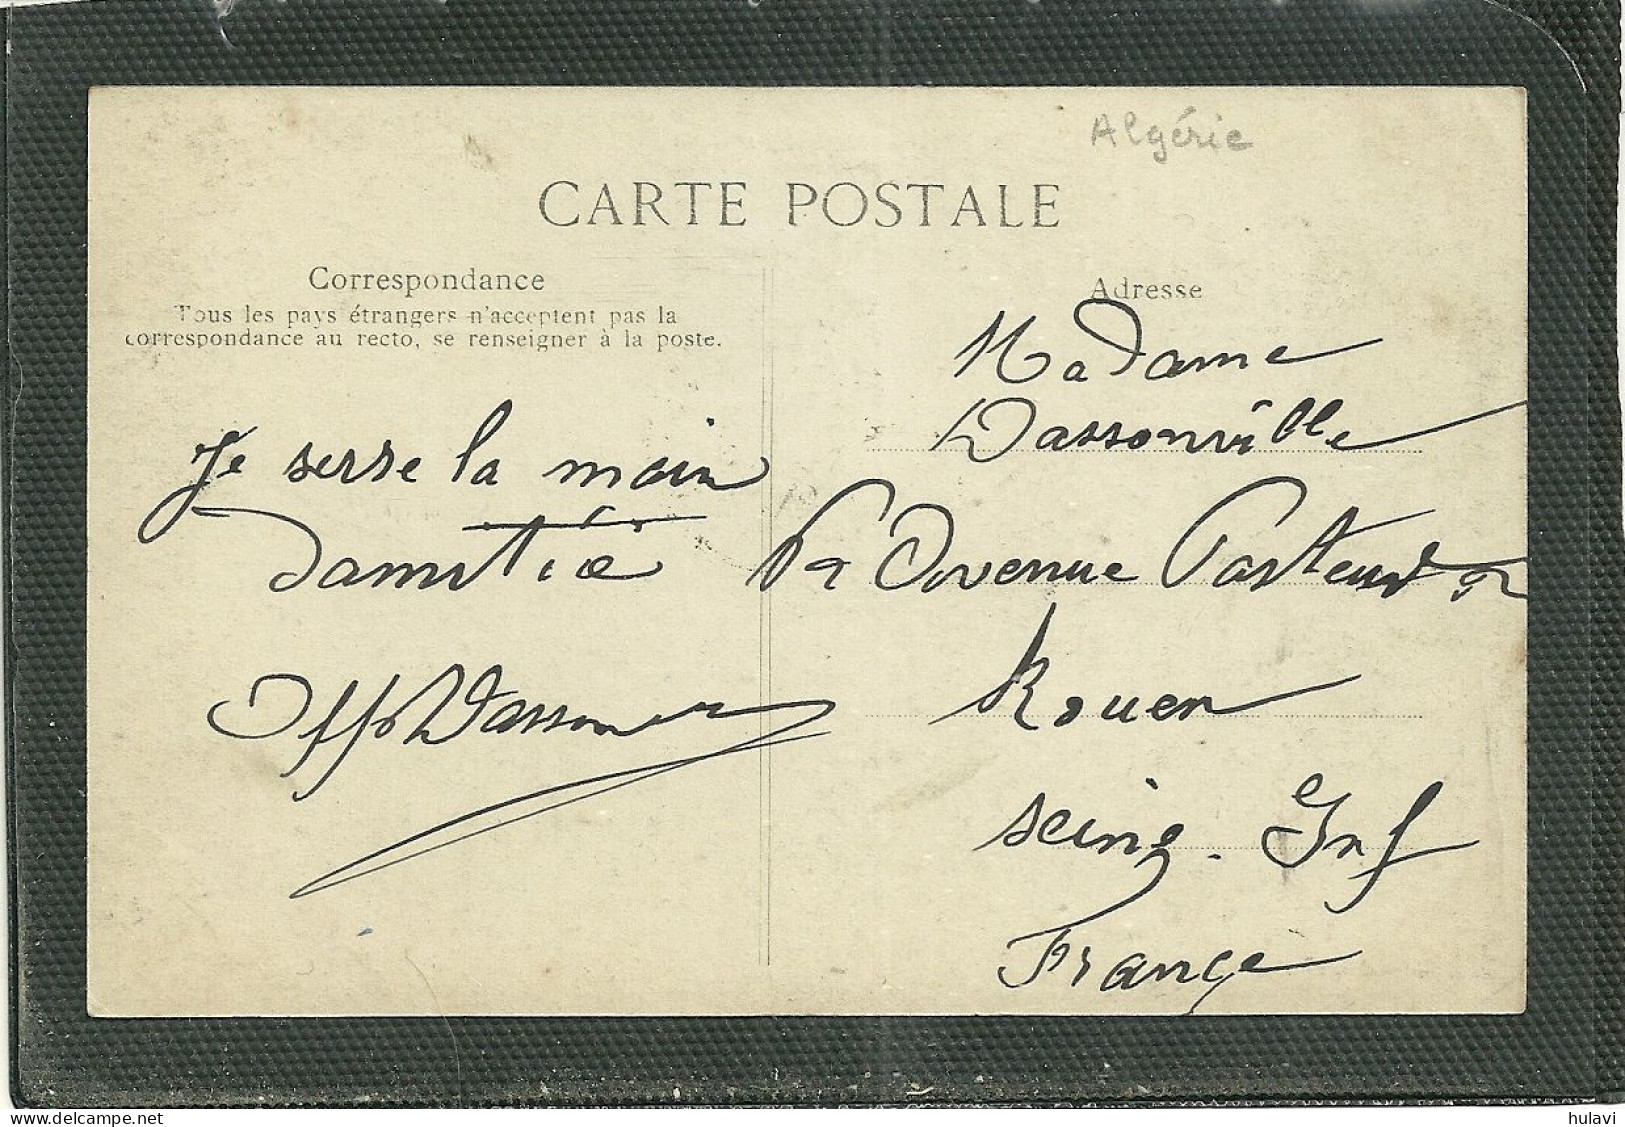 Algérie
CARTE POSTALE
Correspondance
Tous les pays étrangers n'acceptent pas la
correspondance au recto, se renseigner à la poste.
Je serre la main
damitié
Adresse
Madame
Dassonville
Avenue Pasteur
Rouen
Seine. Inf
France
delcampe.net
hulavi